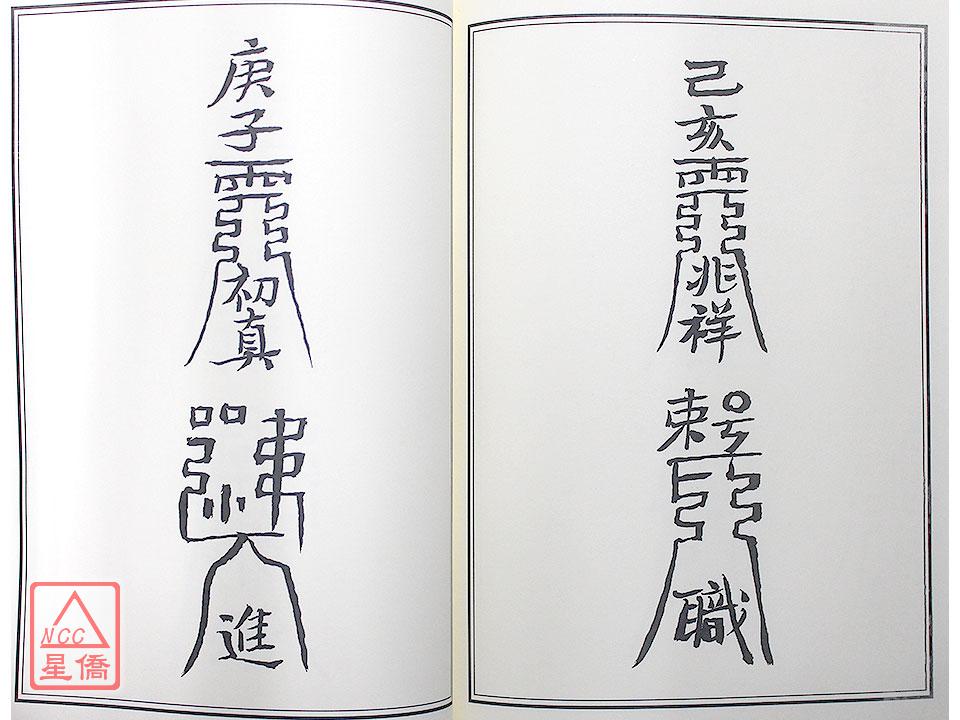 己亥
兆祥
職
庚子
初真
進
NCC
星僑